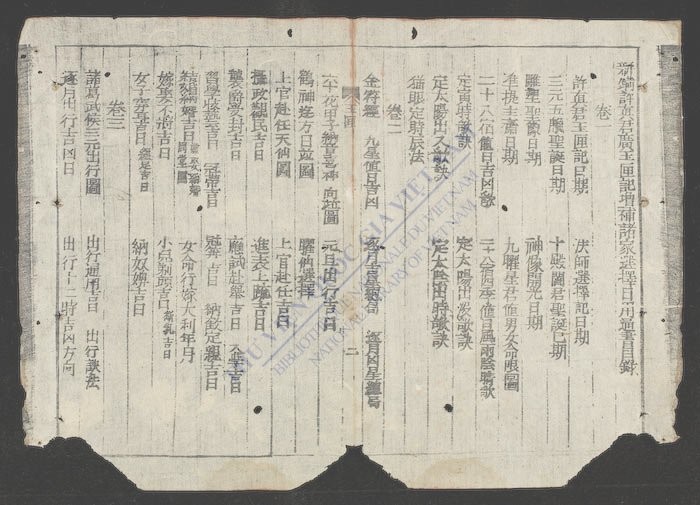 新鐫許真君廣玉匣記增補諸家選擇日用通書目錄
卷一
許真君玉匣記日期 法師選擇記日期
三元五臘聖誕日期 十殿閻君聖誕日期
雕塑聖像日期 神像開光日期
准提主齋日期 九曜星君值男女命限圖
二十八宿值日吉凶歌 二十八宿四季值日風雨陰晴歌
定寅時歌訣 定太陽出沒歌訣
定太陰出入歌訣 定太陰出時歌訣
猫眼定時辰法
卷二
金符經 九星值日吉凶 逐月吉星總局 逐月凶星總局
六十花甲子 向速圖 元旦出行吉日
鶴神遊方日遊圖 曜仙選擇
上官赴任天仙圖 上官赴任吉日
撫政親民吉日 進表上疏吉日
襲爵受封吉日 應試赴舉吉日 入學吉日
習學技藝吉日 冠笄吉日 納采定親吉日
結婚姻吉日 周堂圖 女命行嫁大利年月
嫁娶不將吉日 小兒剃頭吉日
女子穿耳吉日 纏足吉日 納奴婢吉日
卷三
諸葛武侯三元出行圖 出行通用吉日 出行訣法
逐月出行吉凶日 出行十二時吉凶方向
THƯ VIỆN QUỐC GIA VIỆT NAM
BIBLIOTHÈQUE NATIONALE DU VIETNAM
NATIONAL LIBRARY OF VIETNAM